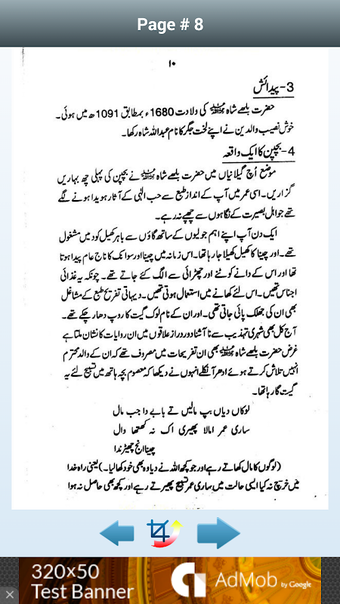 Page # 8
۱۰
3- پیدائش
حضرت بلھے شاہ ﷺ کی ولادت 1680ء بمطابق 1091ھ میں ہوئی۔
خوش نصیب والدین نے اپنے لخت جگر کا نام عبداللہ شاہ رکھا۔
4- بچپن کا ایک واقعہ
موضع اُچ گیلانیاں میں حضرت بلھے شاہ ﷺ نے بچپن کی پہلی چھ بہاریں
گزاریں۔ اسی عمر میں آپ کے انداز طبع سے حب الٰہی کے آثار ہویدا ہونے لگے
تھے جو اہل بصیرت کے نگاہوں سے چھپے نہ رہے۔
ایک دن آپ اپنے اہم جولیوں کے ساتھ گاؤں سے باہر کھیل کود میں مشغول
تھے۔ اور چینا کا کھیل کھیلا جا رہا تھا۔ اس زمانہ میں چینا اور سوانک کا ناج عام پیدا ہوتا
تھا اور اس کے دانے کوٹنے اور چھڑائی سے الگ کئے جاتے تھے۔ چونکہ یہ غذائی
اجناس تھیں۔ اس لئے کھانے میں استعمال ہوتی تھیں۔ دیہاتی تفریح طبع کے مشاغل
بھی ان کی جھلک پائی جاتی تھی۔ اور ان کے نام لوک گیت کا روپ دھار چکے تھے۔
آج کل بھی شہری تہذیب سے نا آشنا دور دراز علاقوں میں ان روایات کا نشان ملتا ہے
غرض حضرت بلھے شاہ ﷺ بھی ان تفریحات میں مصروف تھے کہ ان کے والد محترم
انہیں تلاش کرتے ہوئے ادھر آ نکلے انہوں نے دیکھا کہ معصوم بچہ ہاتھ میں تسبیح لئے یہ
گیت گا رہا تھا۔
لوکاں دیاں جپ مالیں تے بابے دا جب مال
ساری عمر امالا پھیری اک نہ کتھا وال
چینا انج چھڑیندا
(لوگوں کا مال کھاتے رہا اور جو کچھ اللہ نے دیا وہ بھی خود کھا لیا۔) یعنی راہ خدا
میں خرچ نہ کیا ایسی حالت میں ساری عمر تسبیح پھیرتے رہے اور کچھ بھی حاصل نہ ہوا
320x50
Test Banner
AdMob by Google